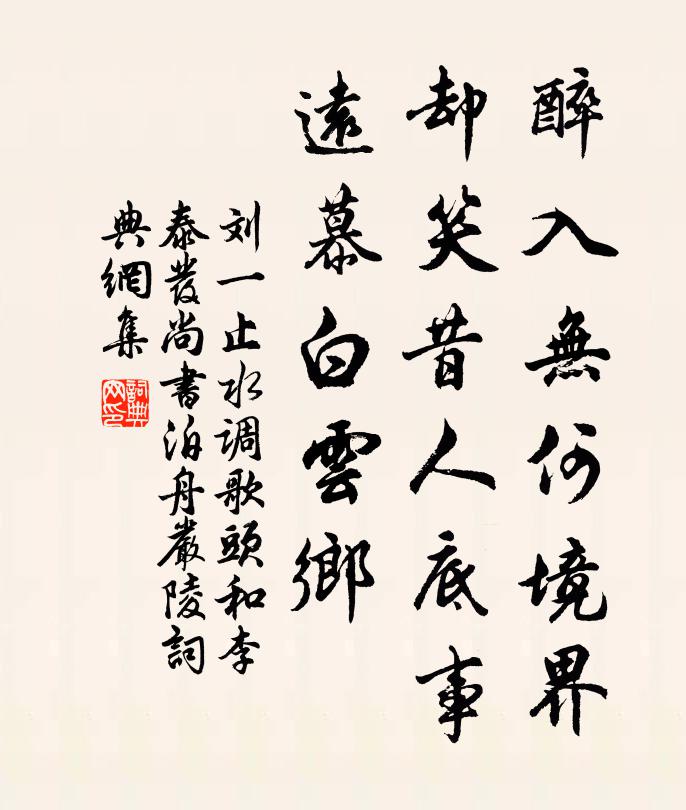 醉入無何境界
却笑昔人底事
遠慕白雲鄉
刘一止水调歌頭和李
泰發尚書泊舟嚴陵詞
典網集
詞典
网印